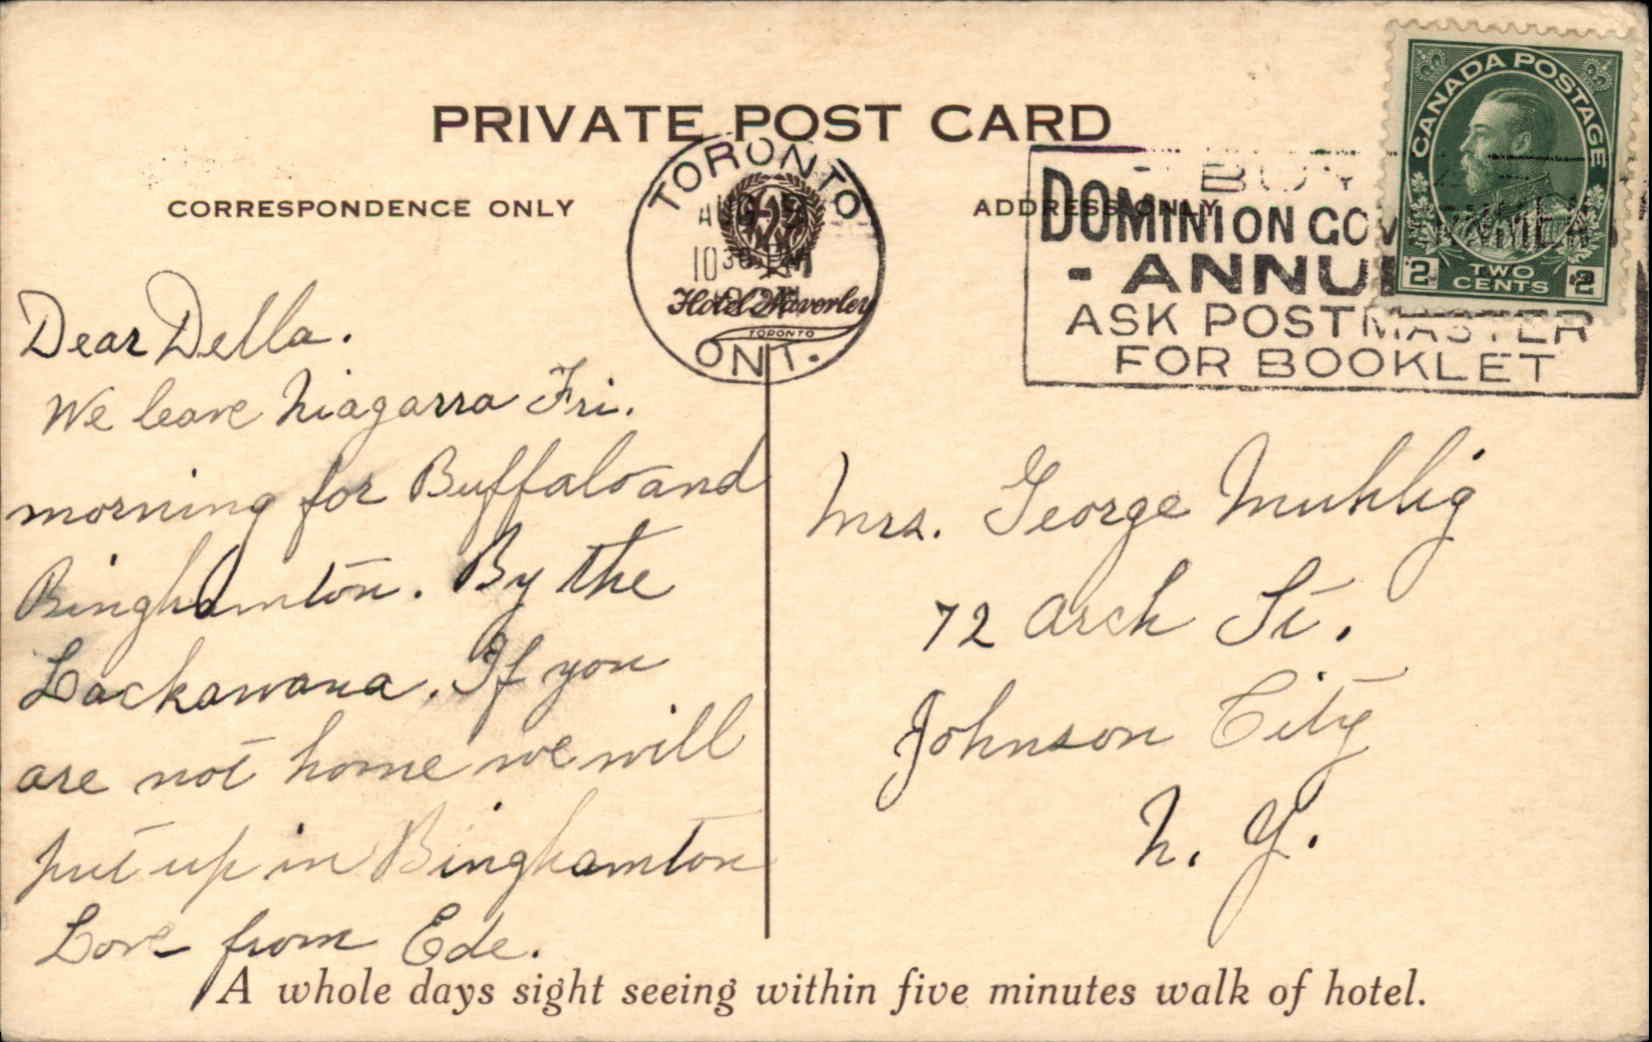 PRIVATE POST CARD
CORRESPONDENCE ONLY
ADDRESS ONLY
TORONTO
AUG
10 30 PM
ONT.
Hotel Waverley
TORONTO
BUY
DOMINION GOVERNMENT
- ANNU
ASK POSTMASTER
FOR BOOKLET
CANADA POSTAGE
2 TWO CENTS 2
Dear Della.
We leave Niagarra Fri.
morning for Buffalo and
Binghamton. By the
Lackawana. If you
are not home we will
put up in Binghamton
Love from Ede.
Mrs. George Muhlig
72 Arch St.
Johnson City
N. Y.
A whole days sight seeing within five minutes walk of hotel.